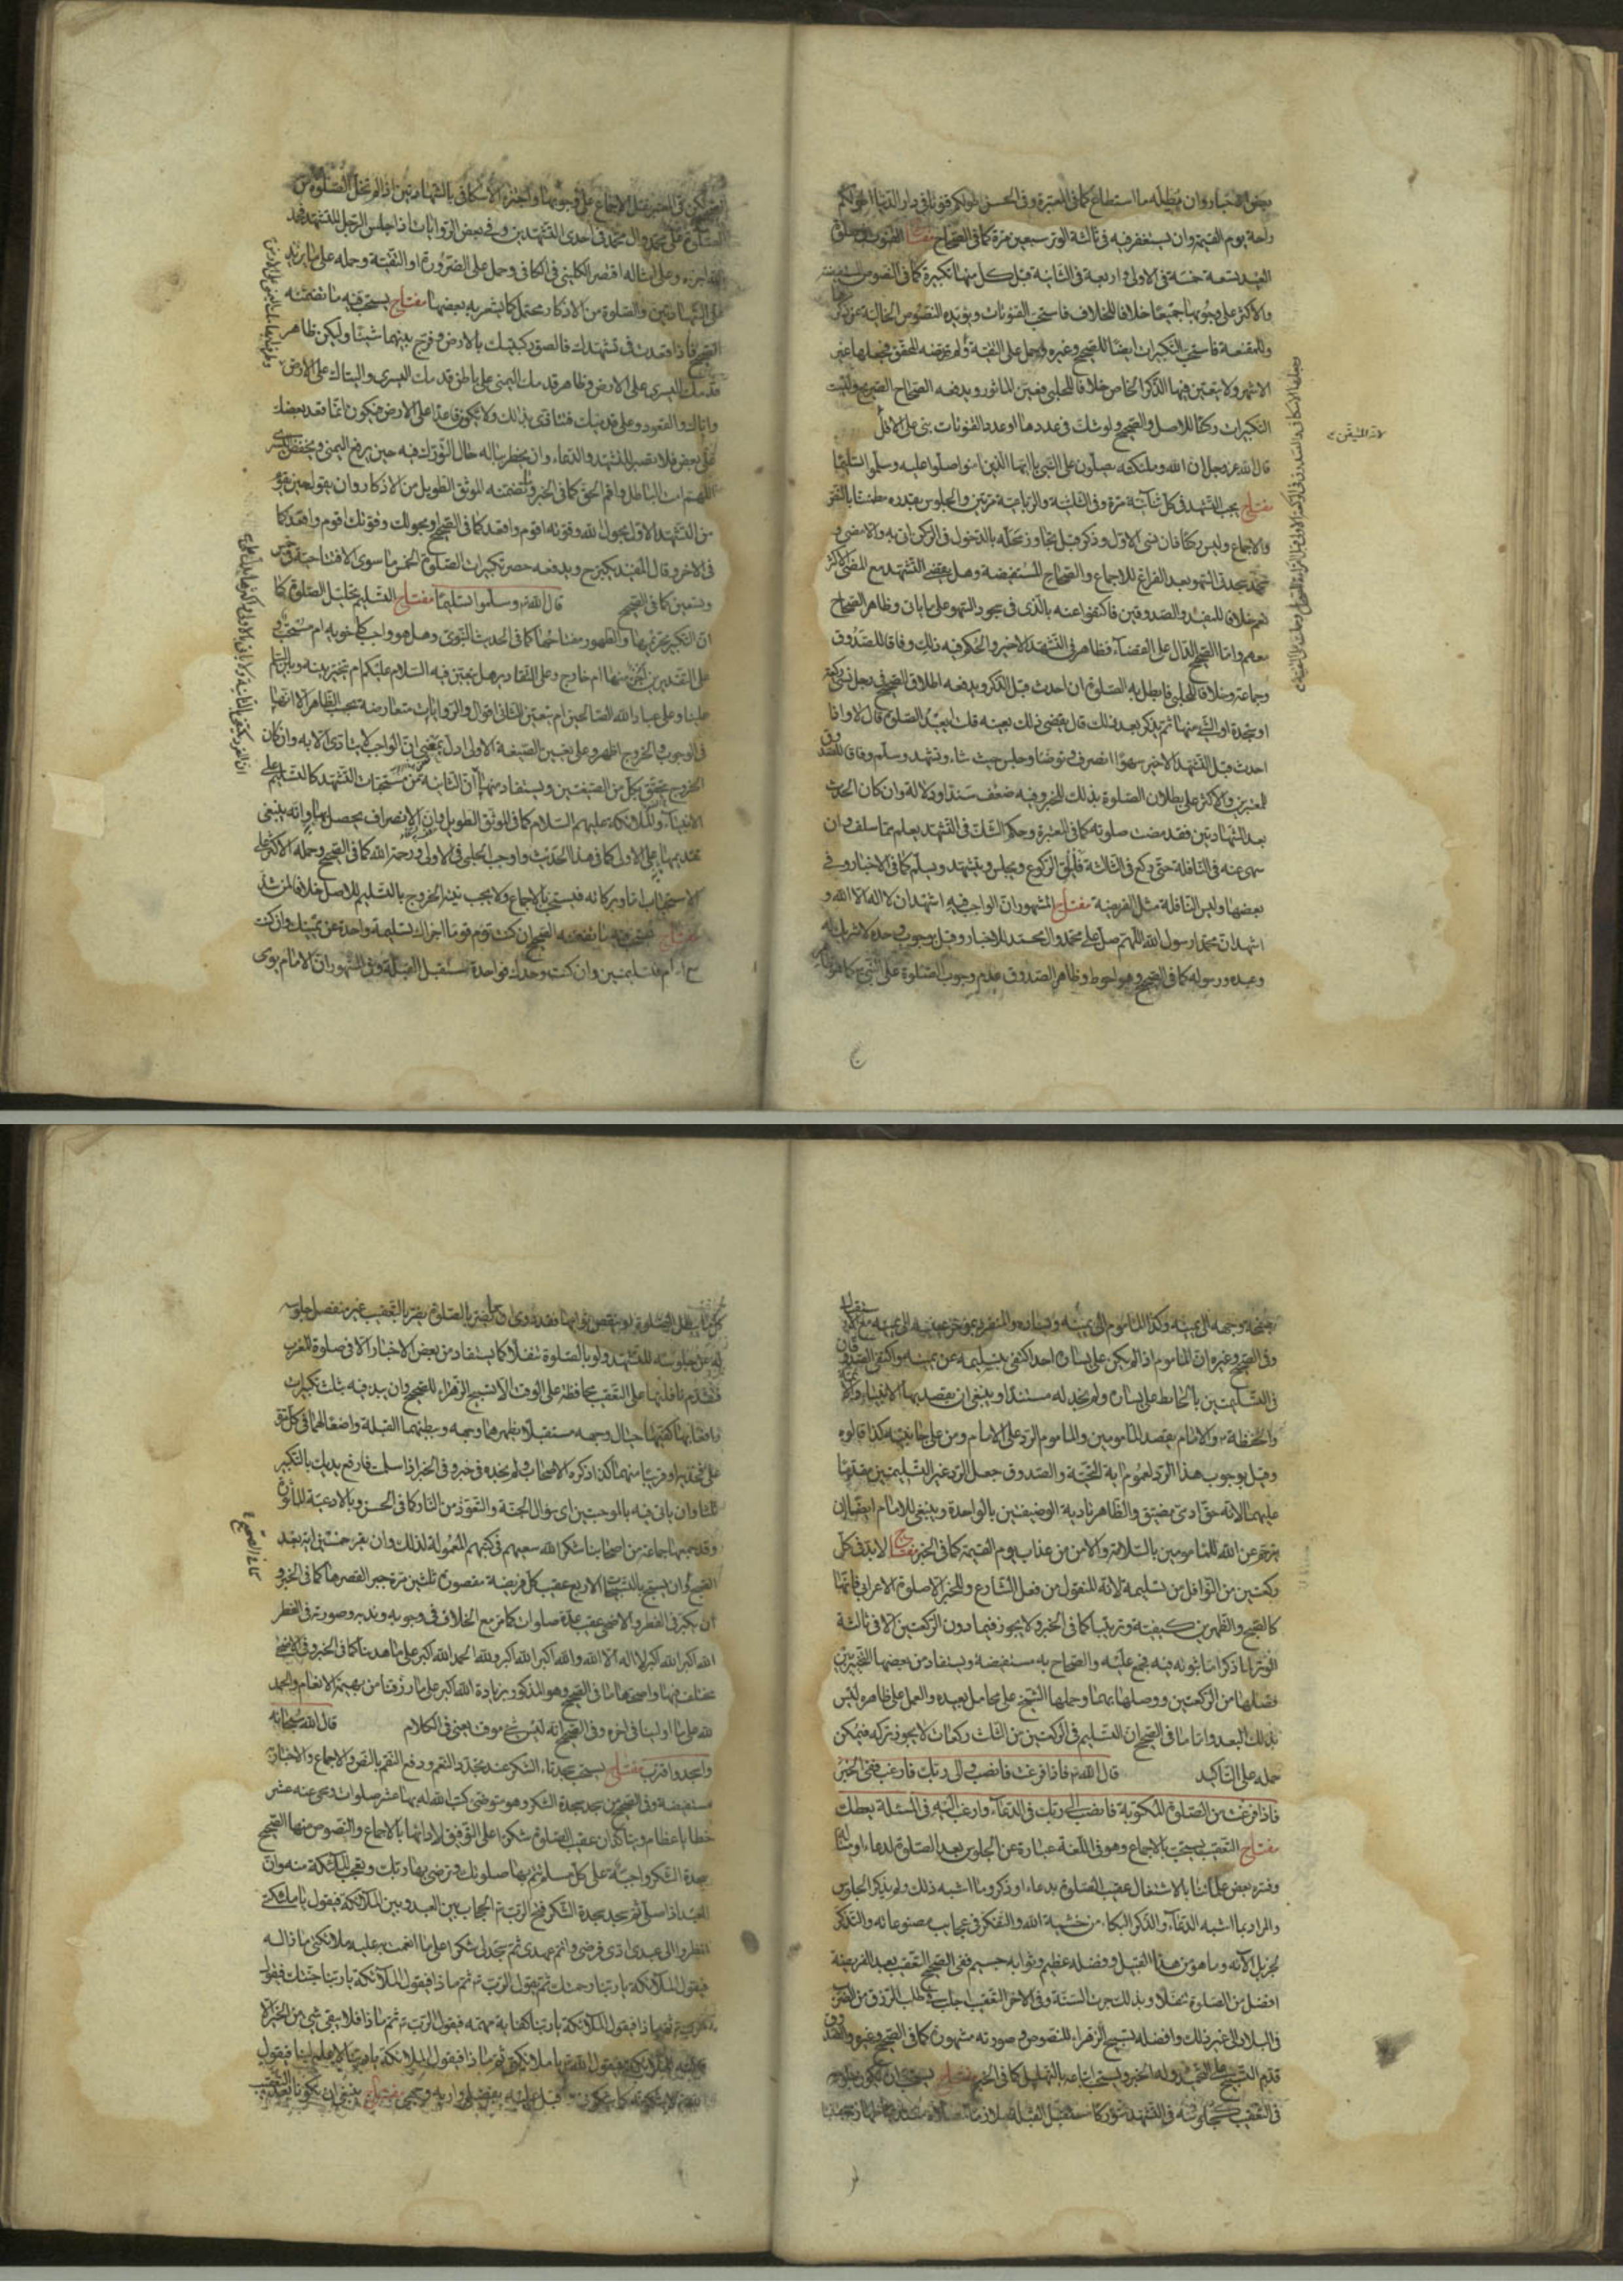 بعض الاخبار وان يطيله ما استطاع كما في المعتبرة وفي الحسن اطولكم قنوتا في دار الدنيا اطولكم
راحة يوم القيمة وان يستغفر فيه في ثالثة الوتر سبعين مرة كما في الصحاح مفتاح القنوت في صلوة
العيد تسعة خمسة في الاولى واربعة في الثانية قبل كل منها تكبيرة كما في النصوص المستفيضة
والاكثر على وجوبها جميعا خلافا للخلاف فاستحب القنوتات ويؤيده النصوص الخالية عن ذكرها
وللمقنعة فاستحب التكبيرات ايضا للصحيح وغيره وحمل على التقية
الاشهر ولا يتعين فيها الذكر الخاص خلافا للحلبي فعين الماثور ويدفعه الصحاح الصريح وليست
التكبيرات ركنا للاصل والصحيح ولو شك في عددها او عدد القنوتات بنى على الاقل
لانه المتيقن
قال الله عز وجل ان الله وملئكته يصلون على النبي يا ايها الذين امنوا صلوا عليه وسلموا تسليما
مفتاح يجب التشهد في كل ثنائية مرة وفي الثلاثية والرباعية مرتين والجلوس بقدره مطمئنا بالنص
والاجماع وليس ركنا فان نسي الاول وذكر قبل تجاوز محله بالدخول في الركن اتى به والا مضى و
سجد سجدتي السهو بعد الفراغ للاجماع والصحاح المستفيضة وهل يقضي التشهد مع المضي الاكثر
نعم خلافا للمفيد والصدوقين فاكتفوا عنه بالذي في سجود السهو على ما يأتي وظاهر الصحاح
معهم واما الصحيح الدال على القضاء فظاهر في التشهد الاخير والحكم فيه ذلك وفاقا للصدوق
وجماعة وخلافا للحلي فابطل به الصلوة ان احدث قبل الذكر ويدفعه اطلاق الصحيح في رجل نسي ركعة
او سجدة او الشيء منها ثم تذكر بعد ذلك قال يقضي ذلك بعينه قلت ايعيد الصلوة قال لا واذا
احدث قبل التشهد الاخير سهوا انصرف وتوضا وجلس حيث شاء وتشهد وسلم وفاقا للصدوق
للمعتبرين والاكثر على بطلان الصلوة بذلك للخبر وفيه ضعف سندا ودلالة وان كان الحدث
بعد الشهادتين فقد مضت صلوته كما في المعتبرة وحكم الشك في التشهد يعلم مما سلف وان
سهى عنه في النافلة حتى ركع في الثالثة فليلق الركوع ويجلس ويتشهد ويسلم كما في الاخبار وفي
بعضها وليس النافلة مثل الفريضة مفتاح المشهور ان الواجب فيه اشهد ان لا اله الا الله و
اشهد ان محمدا رسول الله اللهم صل على محمد وال محمد للاخبار وقيل بوجوب وحده لا شريك له
وعبده ورسوله كما في الصحيح وهو احوط وظاهر الصدوق عدم وجوب الصلوة على النبي
الصحيح لكن في المعتبر نقل الاجماع على وجوبها واجتزء الاسكافي بالشهادتين اذا لم تخل الصلوة من
الصلوة على محمد وال محمد في احدى التشهدين وفي بعض الروايات اذا جلس الرجل للتشهد فحمد
الله اجزءه وعلى امثاله اقتصر الكليني في الكافي وحمل على الضرورة او التقية وحمله على ما يزيد
على الشهادتين والصلوة من الاذكار محتمل كما يشعر به بعضها مفتاح يستحب فيه ما تضمنه
الصحيح فاذا قعدت في تشهدك فالصق ركبتيك بالارض وفرج بينهما شيئا وليكن ظاهر
قدمك اليسرى على الارض وظاهر قدمك اليمنى على باطن قدمك اليسرى والیتاك على الارض
واياك والقعود على قدميك فتتاذى بذلك ولا تكون قاعدا على الارض فيكون انما قعد بعضك
على بعض فلا تصبر للتشهد والدعاء وان يخطر بباله حال التورك فيه حين يرفع اليمنى ويخفض اليسرى
اللهم امت الباطل واقم الحق كما في الخبر وما تضمنه الموثق الطويل من الاذكار وان يقول حين يقوم
من التشهد الاول بحول الله وقوته اقوم واقعد كما في الصحيح وبحولك وقوتك اقوم واقعد كما
في الاخر وقال المفيد يكبر ح ويدفعه حصر تكبيرات الصلوة الخمس ما سوى الافتتاحية
وتسعين كما في الصحيح قال الله تع وسلموا تسليما مفتاح التسليم تحليل الصلوة كما
ان التكبير تحريمها والطهور مفتاحها كما في الحديث النبوي وهل هو واجب كاخويه ام مستحب و
على التقديرين اجزء منها ام خارج وعلى التقادير هل يتعين فيه السلام عليكم ام تخير بينه وبين السلام
علينا وعلى عباد الله الصالحين ام يتعين الثاني اقوال والروايات متعارضة بحسب الظاهر الا انها
في الوجوب والخروج اظهر وعلى تعيين الصيغة الاولى ادل بمعنى ان الواجب لا يتادى الا به وان كان
الخروج يتحقق بكل من الصيغتين ويستفاد منها ان الثانية من مستحبات التشهد كالتسليم على
الانبياء والملائكة عليهم السلام كما في الموثق الطويل وان الانصراف يحصل بها وانه ينبغي
تقديمها على الاولى كما في هذا الحديث واوجب الحلبي في الاولى ورحمة الله كما في الصحيح وحمله الاكثر على
الاستحباب اما وبركاته فيستحب بالاجماع ولا يجب نية الخروج بالتسليم للاصل خلافا لمن شذ
مفتاح يستحب فيه ما تضمنه الصحيح ان كنت تؤم قوما اجزاك تسليمة واحدة عن يمينك وان كنت
مع امام فتسليمتين وان كنت وحدك فواحدة مستقبل القبلة وفي المشهور ان الامام يومى
بصفحة وجهه الى يمينه وكذا الماموم الى يمينه ويساره والمنفرد بمؤخر عينيه الى يمينه
وفي الصحيح وغيره ان الماموم اذا لم يكن على يساره احد اكتفى بتسليمه عن يمينه واكتفى الصدوقان
في التسليمتين بالحائط على يساره ولم نجد له مستندا وينبغي ان يقصد بها الانبياء والائمة
والحفظة والامام يقصد المامومين والماموم الرد على الامام ومن على جانبيه كذا قالوه
وقيل بوجوب هذا الرد لعموم اية التحية والصدوق جعل الرد غير التسليمتين مقدما
عليهما لانه حق ادمى مضيق والظاهر تادية الوضيفتين بالواحدة وينبغي للامام ايضا ان
يترجم عن الله للمامومين بالسلامة والامن من عذاب يوم القيمة كما في الخبر مفتاح لا بد في كل
ركعتين من النوافل من تسليمة لانه المنقول من فعل الشارع وللخبر الا صلوة الاعرابي فانها
كالصبح والظهرين كيفية وترتيبا كما في الخبر ولا يجوز فيما دون الركعتين الا في ثالثة
الوتر لما ذكر اما ثبوته فيه فمجمع عليه والصحاح به مستفيضة ويستفاد من بعضها التخيير بين
فصلها من الركعتين ووصلها بهما وحملها الشيخ على محامل بعيده والعمل على ظاهره ليس
بذلك البعيد واما ما في الصحيح ان التسليم في الركعتين من الثلث ركعات لا يجوز تركه فيمكن
حمله على التاكيد قال الله تع فاذا فرغت فانصب والى ربك فارغب ففي الخبر
فاذا فرغت من الصلوة المكتوبة فانصب الى ربك في الدعاء وارغب اليه في المسئلة يعطك
مفتاح التعقيب يستحب بالاجماع وهو في اللغة عبارة عن الجلوس بعد الصلوة لدعاء او مسئلة
وفسره بعض علمائنا بالاشتغال عقيب الصلوة بدعاء او ذكر وما اشبه ذلك ولم يذكر الجلوس
والمراد بما اشبه الدعاء والذكر البكاء من خشية الله والتفكر في عجايب مصنوعاته والتذكر
لجزيل الائه وما هو من هذا القبيل وفضله عظيم وثوابه جسيم ففي الصحيح التعقيب بعد الفريضة
افضل من الصلوة تنفلا وبذلك جرت السنة وفي الاخر التعقيب ابلغ في طلب الرزق من الضرب
في البلاد الى غير ذلك وافضله تسبيح الزهراء للنصوص وصورته مشهورة كما في الصحيح وغيره والصدوق
قدم التسبيح على التحميد وله الخبر ويستحب اتباعه بالتهليل كما في الخبر مفتاح يستحب ان يكون جلوسه
في التعقيب كجلوسه في التشهد متوركا مستقبل القبلة ملازما
كل ما يبطل الصلوة او ينقص ثوابها فقد روى ان ما يضر بالصلوة يضر بالتعقيب غير منفصل جلوسه
له عن جلوسه للتشهد ولو بالصلوة تنفلا كما يستفاد من بعض الاخبار الا في صلوة المغرب
فتقدم نافلتها على التعقيب محافظة على الوقت الا تسبيح الزهراء للصحيح وان يبدء فيه بثلث تكبيرات
رافعا بها كفيه حيال وجهه مستقبلا بظهرهما وجهه وبطنهما القبلة واضعا لهما في كل مرة
على فخذيه او قريبا منهما كذا ذكره الاصحاب ولم نجده في خبر وفي الخبر اذا سلمت فارفع يديك بالتكبير
ثلثا وان ياتي فيه بالموجبتين اى سؤال الجنة والتعوذ من النار كما في الحسن وبالادعية الماثورة
وقد جمعها جماعة من اصحابنا شكر الله سعيهم في كتبهم المعمولة لذلك وان يقرء خمسين اية بعد
الصبح وان يسبح بالتسبيحات الاربع عقيب كل فريضة مقصورة ثلثين مرة جبرا لقصرها كما في الخبر و
ان يكبر في الفطر والاضحى عقيب عدة صلوات كما مر مع الخلاف في وجوبه وندبه وصورته في الفطر
الله اكبر الله اكبر لا اله الا الله والله اكبر الله اكبر ولله الحمد الله اكبر على ما هدينا كما في الخبر وفي الاضحى
مختلف فيها واصحها ما في الصحيح وهو المذكور بزيادة الله اكبر على ما رزقنا من بهيمة الانعام والحمد
لله على ما اولينا في اخره وفي الصحيح انه ليس شئ موقت يعني في الكلام قال الله سبحانه
واسجد واقترب مفتاح يستحب سجدتا الشكر عند تجدد النعم ودفع النقم بالنص والاجماع والاخبار
مستفيضة وفي الصحيح من سجد سجدة الشكر وهو متوضئ كتب الله له بها عشر صلوات ومحى عنه عشر
خطايا عظام ويتاكدان عقيب الصلوة شكرا على التوفيق لادائها بالاجماع والنصوص منها الصحيح
سجدة الشكر واجبة على كل مسلم تتم بها صلوتك وترضى بها ربك وتعجب الملئكة منه وان
العبد اذا صلى ثم سجد سجدة الشكر فتح الرب تع الحجاب بين العبد وبين الملائكة فيقول يا ملئكتي
انظروا الى عبدى ادى فرضى واتم عهدى ثم سجد لى شكرا على ما انعمت به عليه ملائكتى ماذا له
فيقول الملائكة يا ربنا رحمتك ثم يقول الرب تع ثم ماذا فيقول الملائكة يا ربنا جنتك فيقول
الرب تع ثم ماذا فيقول الملائكة يا ربنا كفاية مهمه فيقول الرب تع ثم ماذا فلا يبقى شئ من الخير الا
قالته الملائكة فيقول الله تع يا ملائكتى ثم ماذا فيقول الملائكة يا ربنا لا علم لنا فيقول
الله تع لاشكرنه كما شكرنى واقبل اليه بفضلى واريه وجهى مفتاح ينبغي ان يكونا